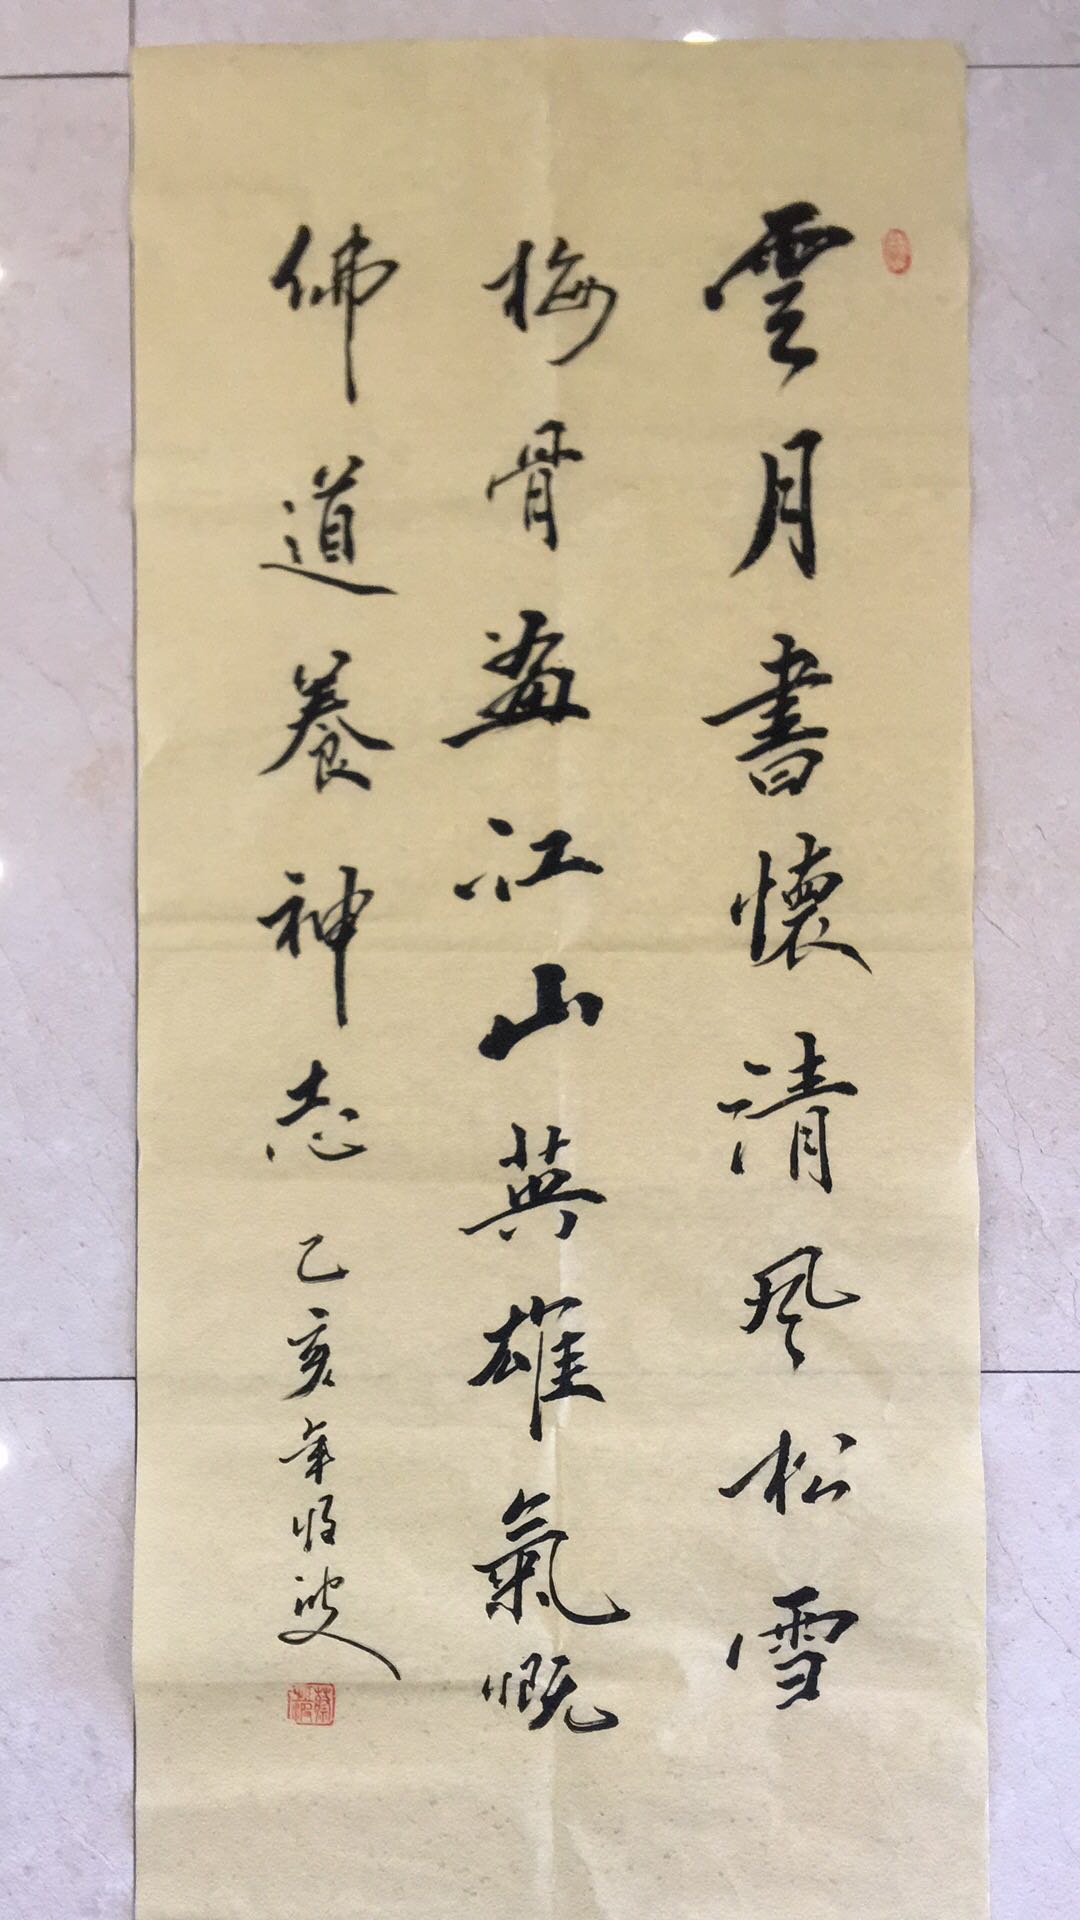 雲月書懷清风松雪
梅骨畫江山英雄氣慨
佛道養神志 乙亥年